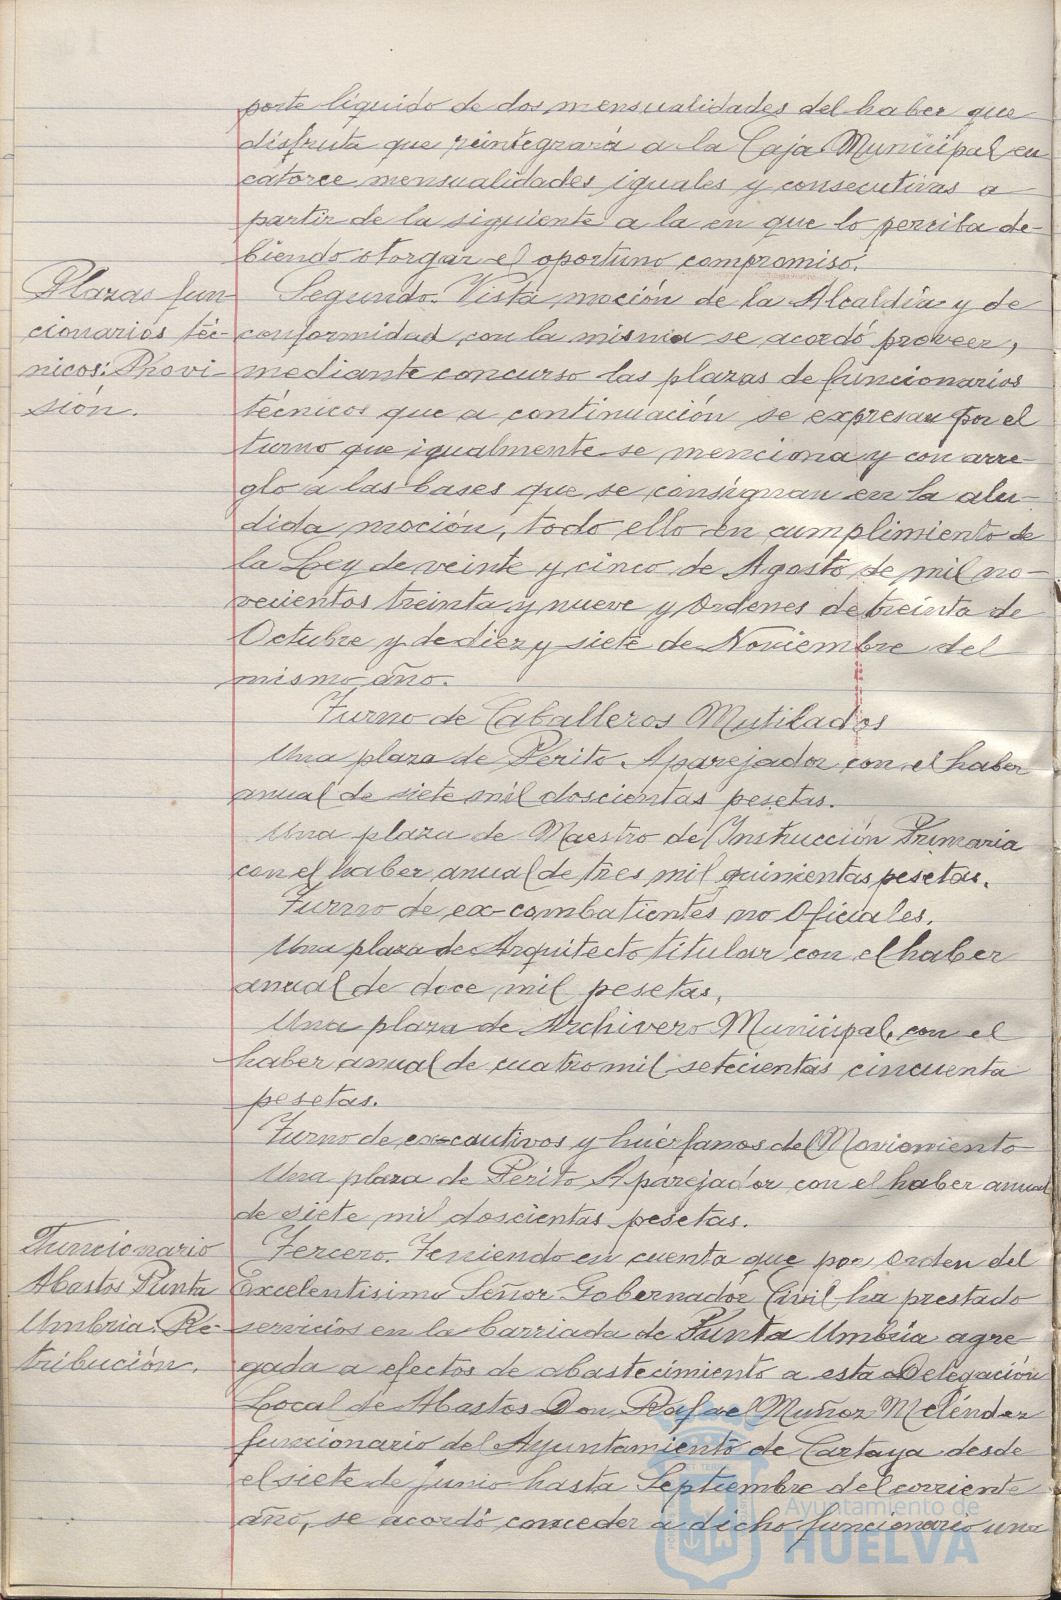 porte líquido de dos mensualidades del haber que
disfruta que reintegrará a la Caja Municipal en
catorce mensualidades iguales y consecutivas a
partir de la siguiente a la en que lo perciba de-
biendo otorgar el oportuno compromiso.
Plazas fun-
cionarios téc-
nicos: Provi-
sión.
Segundo. Vista moción de la Alcaldía y de
conformidad con la misma se acordó proveer,
mediante concurso las plazas de funcionarios
técnicos que a continuación se expresan por el
turno que igualmente se menciona y con arre-
glo a las bases que se consignan en la alu-
dida moción, todo ello en cumplimiento de
la Ley de veinte y cinco de Agosto de mil no-
vecientos treinta y nueve y Ordenes de treinta de
Octubre y de diez y siete de Noviembre del
mismo año.
Turno de Caballeros Mutilados
Una plaza de Perito Aparejador con el haber
anual de siete mil doscientas pesetas.
Una plaza de Maestro de Instrucción Primaria
con el haber anual de tres mil quinientas pesetas.
Turno de ex-combatientes no Oficiales.
Una plaza de Arquitecto titular con el haber
anual de doce mil pesetas.
Una plaza de Archivero Municipal, con el
haber anual de cuatro mil setecientas cincuenta
pesetas.
Turno de ex-cautivos y huérfanos del Movimiento
Una plaza de Perito Aparejador con el haber anual
de siete mil doscientas pesetas.
Funcionario
Abastos Punta
Umbría: Re-
tribución.
Tercero. Teniendo en cuenta que por Orden del
Excelentísimo Señor Gobernador Civil ha prestado
servicios en la barriada de Punta Umbría agre
gada a efectos de abastecimiento a esta Delegación
Local de Abastos Don Rafael Muñoz Meléndez
funcionario del Ayuntamiento de Cartaya desde
el siete de junio hasta Septiembre del corriente
año, se acordó conceder a dicho funcionario una
Ayuntamiento de
HUELVA